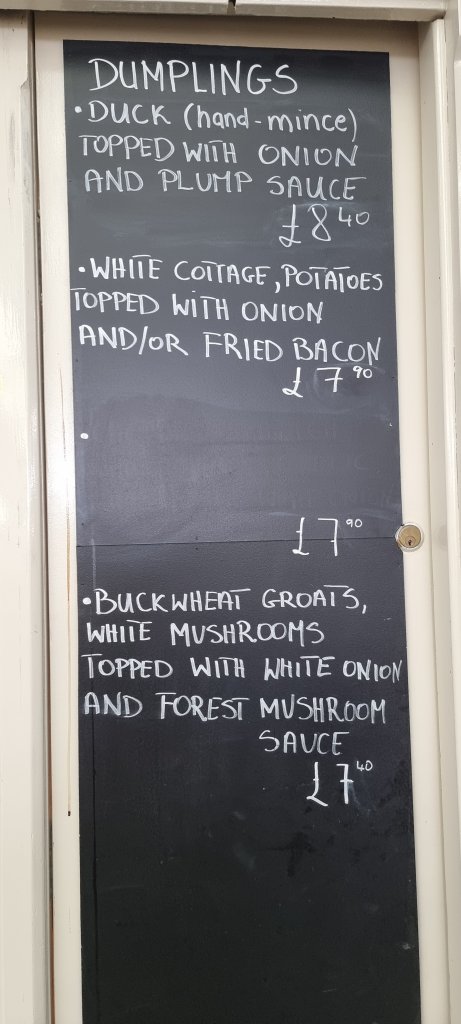 DUMPLINGS
• DUCK (hand-mince)
TOPPED WITH ONION
AND PLUMP SAUCE
£8 40
• WHITE COTTAGE, POTATOES
TOPPED WITH ONION
AND/OR FRIED BACON
£7 90
•
£7 90
• BUCKWHEAT GROATS,
WHITE MUSHROOMS
TOPPED WITH WHITE ONION
AND FOREST MUSHROOM
SAUCE
£7 40